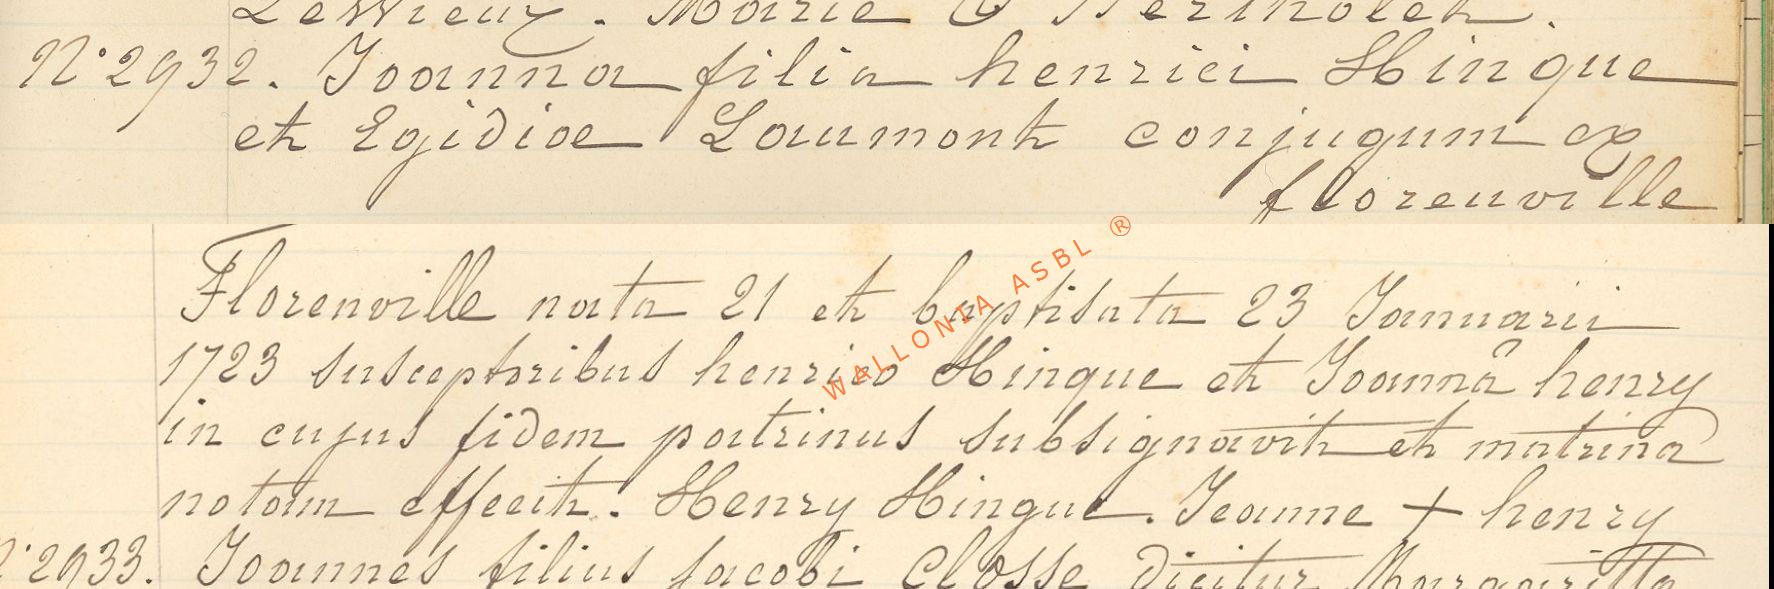 Lessieux. Marie & Bertholet.
N° 2932. Joanna filia henrici Hinque
et Egidioe Laumont conjugum ex
florenville
Florenville nata 21 et baptisata 23 Januarii
1723 susceptoribus henrico Hinque et Joannâ henry
in cujus fidem patrinus subsignavit et matrina
notam effecit. Henry Hinque. Jeanne + henry
N° 2933. Joannes filius jacobi Closse dicitur Margaritta
WALLONIA ASBL ®